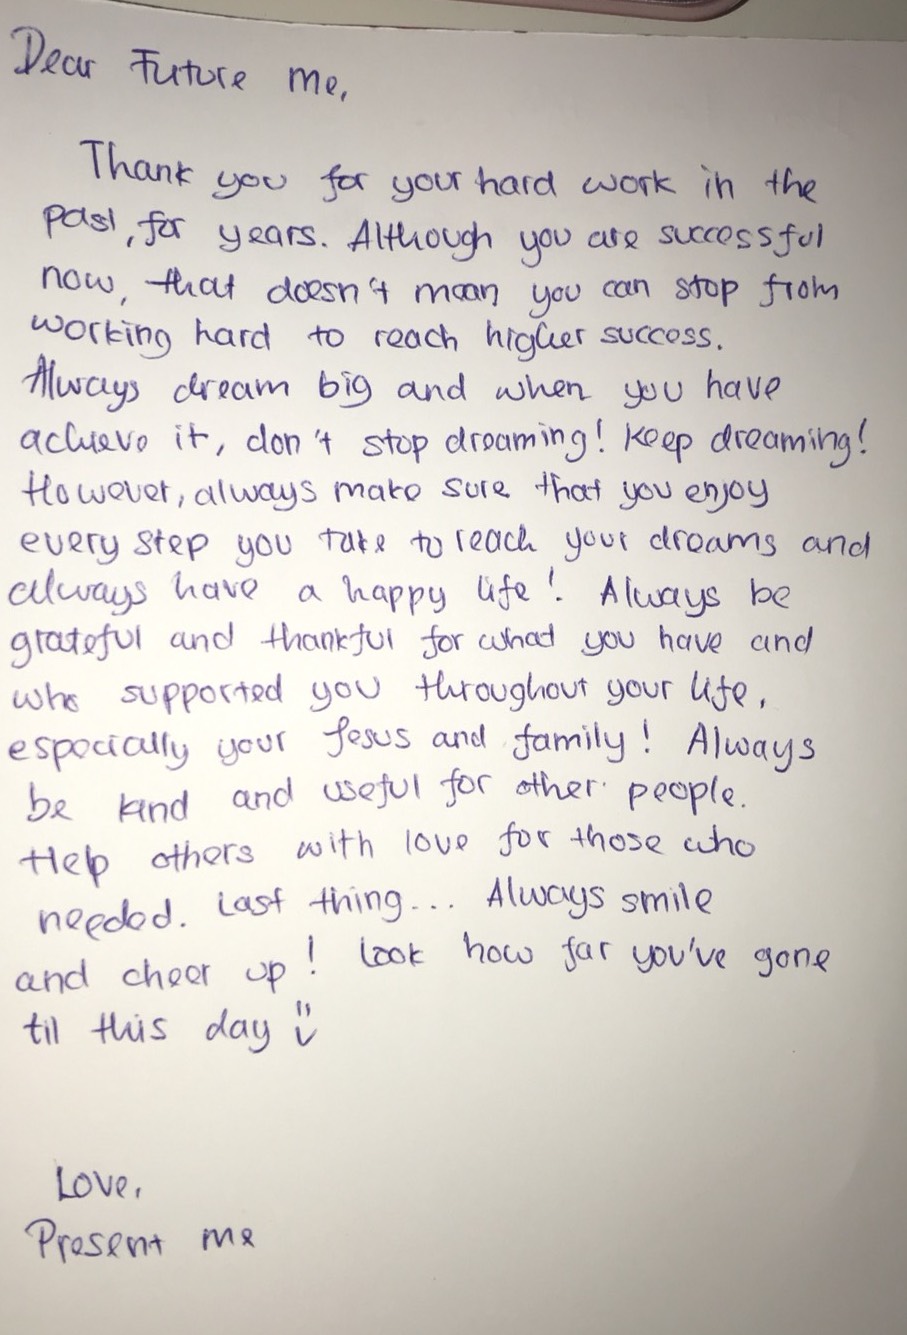 Dear Future me,
Thank you for your hard work in the
past, for years. Although you are successful
now, that doesn't mean you can stop from
working hard to reach higher success.
Always dream big and when you have
achieve it, don't stop dreaming! Keep dreaming!
However, always make sure that you enjoy
every step you take to reach your dreams and
always have a happy life! Always be
grateful and thankful for what you have and
who supported you throughout your life,
especially your Jesus and family! Always
be kind and useful for other people.
Help others with love for those who
needed. Last thing... Always smile
and cheer up! Look how far you've gone
til this day ت
Love,
Present me